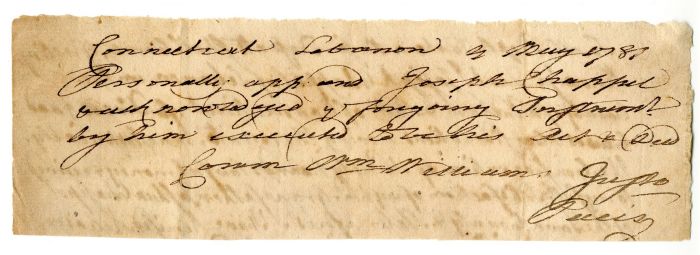 Connecticut Lebanon 4 May 1787
Personally app and Joseph Chappel
& acknowledged ye forgoing Instrumt
by him executed to be his Act & Deed
Coram Wm Williams Justo
Pacis